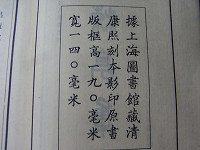 據上海圖書館藏清
康熙刻本影印原書
版框高一九〇毫米
寬一四〇毫米